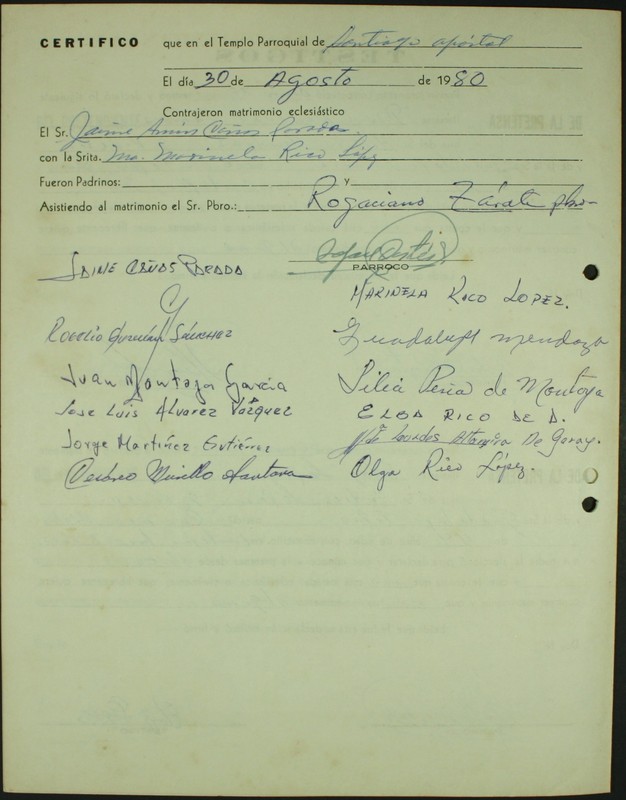 CERTIFICO que en el Templo Parroquial de Santiago apóstol
El día 30 de Agosto de 1980
Contrajeron matrimonio eclesiástico
El Sr. Jaime Cañas Parada
con la Srita. Ma. Marinela Rico López
Fueron Padrinos: y
Asistiendo al matrimonio el Sr. Pbro.: Rogaciano Zárate pbro
PARROCO
JAIME CAÑAS PARADA
MARINELA RICO LOPEZ.
Rogelio Guzmán Sánchez
Guadalupe Mendoza
Juan Montoya García
Lilia Peña de Montoya
Jose Luis Alvarez Vázquez
ELBA RICO DE D.
Jorge Martínez Gutiérrez
Ma de Lourdes Altamira De Garay.
Cesáreo Murillo Santana
Olga Rico López.